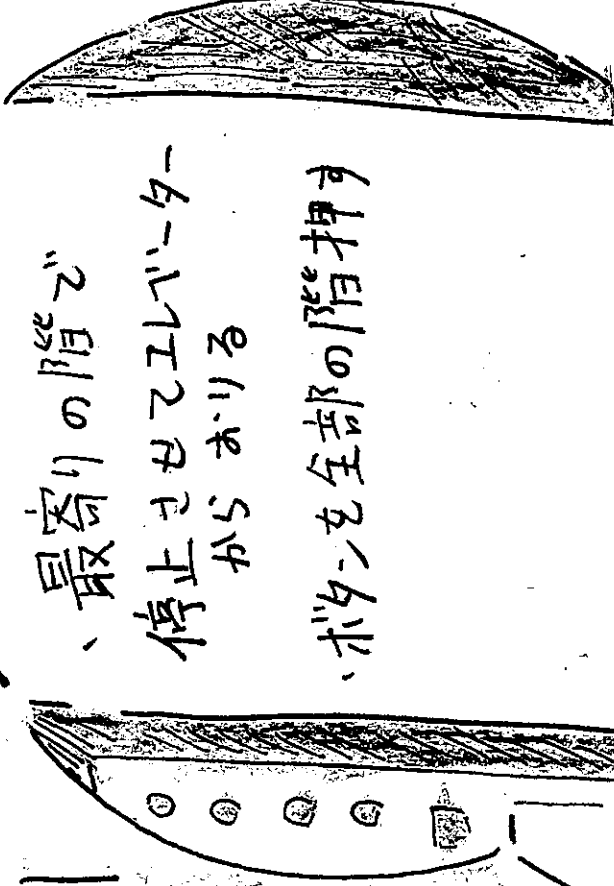 、最寄りの階で
停止させてエレベーター
からおりる
、ボタンを全部の階押す